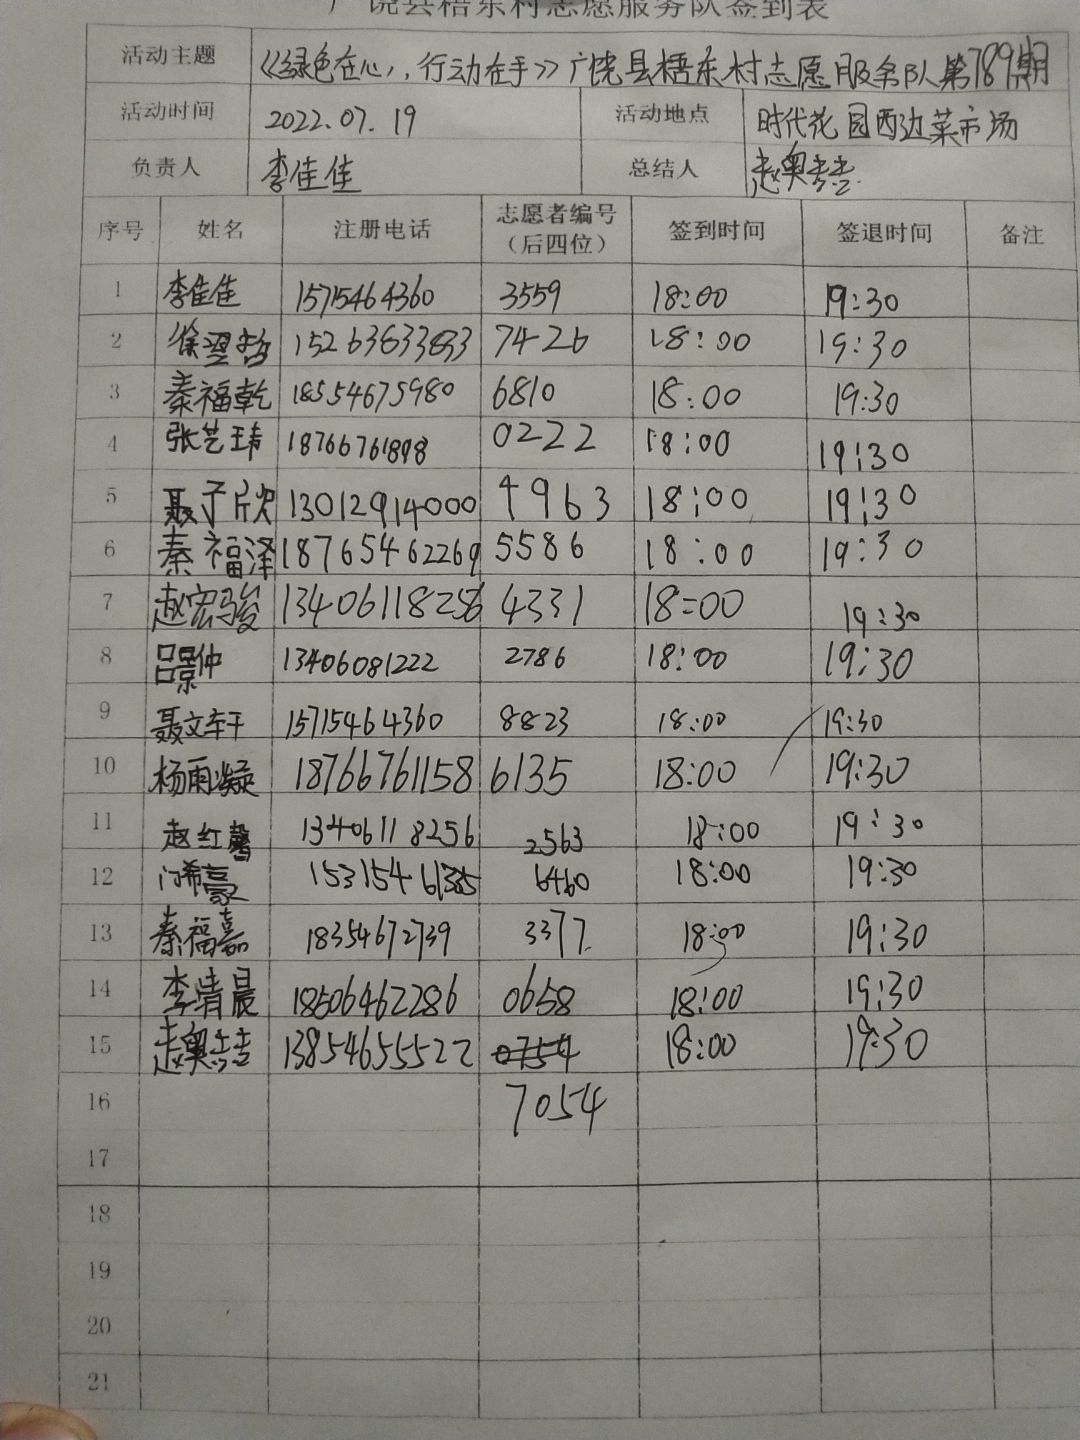 广饶县梧东村志愿服务队签到表
活动主题 《绿色在心,行动在手》广饶县梧东村志愿服务队第789期
活动时间 2022.07.19 活动地点 时代花园西边菜市场
负责人 李佳佳 总结人 赵奥喆
序号 姓名 注册电话 志愿者编号(后四位) 签到时间 签退时间 备注
1 李佳佳 15715464360 3559 18:00 19:30
2 徐塱哲 15263633893 7426 18:00 19:30
3 秦福乾 18554675980 6810 18:00 19:30
4 张艺玮 18766761898 0222 18:00 19:30
5 聂子欣 13012914000 4963 18:00 19:30
6 秦福泽 18765462269 5586 18:00 19:30
7 赵宏骏 13406118256 4331 18:00 19:30
8 吕景仲 13406081222 2786 18:00 19:30
9 聂文轩 15715464360 8823 18:00 19:30
10 杨雨凝 18766761158 6135 18:00 19:30
11 赵红馨 13406118256 2563 18:00 19:30
12 门希豪 6460 18:00 19:30
13 秦福嘉 18354672739 3377 18:00 19:30
14 李清晨 18506462286 0658 18:00 19:30
15 赵奥喆 13854655522 0754 18:00 19:30
16 7054
17
18
19
20
21